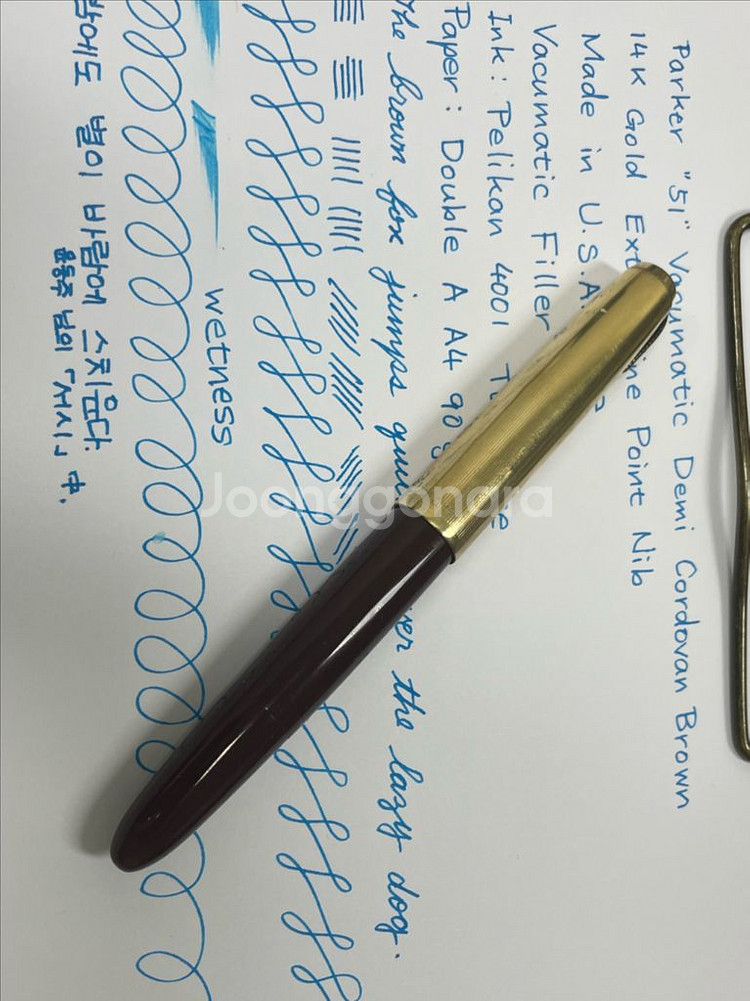 Parker "51" Vacumatic Demi Cordovan Brown
14K Gold Point Nib
Made in U.S.A.
Vacumatic Filler
Ink: Pelikan 4001
Paper: Double A A4
The brown fox jumps the lazy dog.
wetness
별이 바람에 스치운다.
윤동주 님의 「서시」 中.
Joonggonara